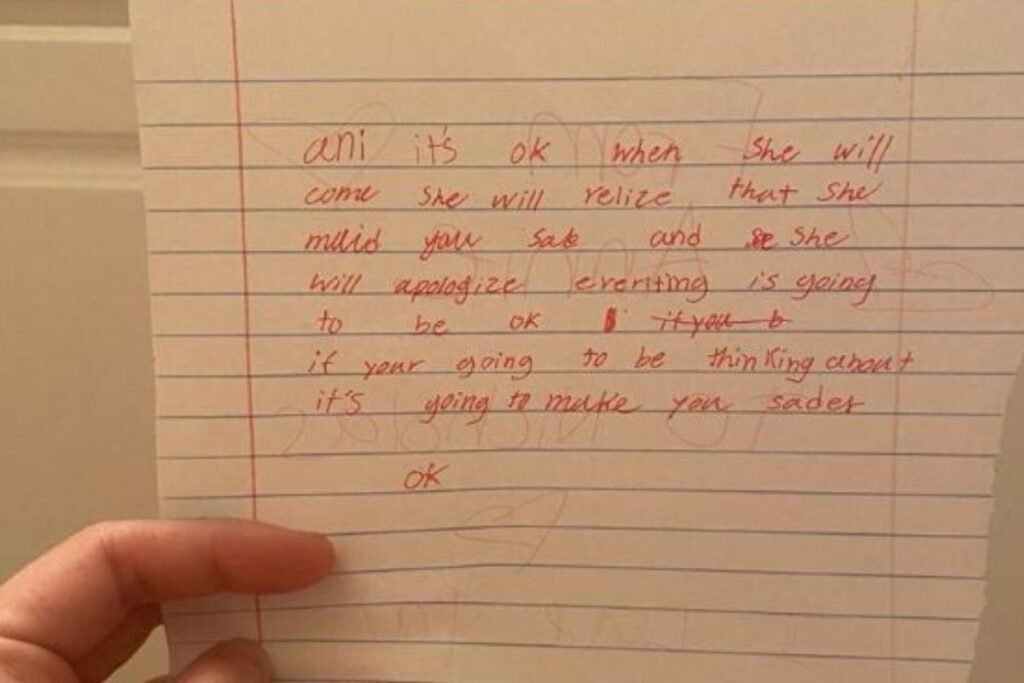 ani it's ok when She will
come She will relize that She
maid you sab and se She
will apologize everiting is going
to be ok if you b
if your going to be thinking about
it's going to make you sader
ok